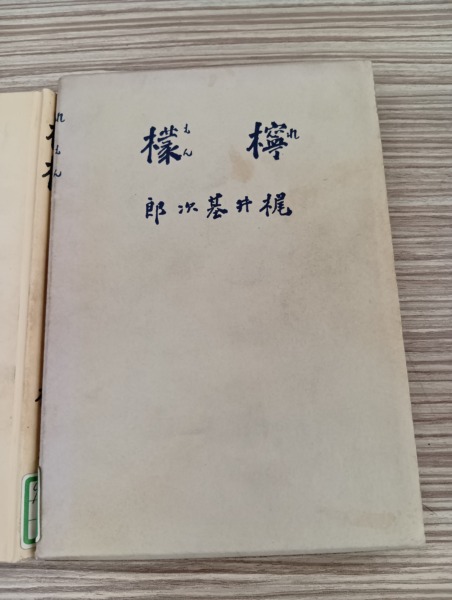 檸檬
れもん
梶井基次郎
れもん